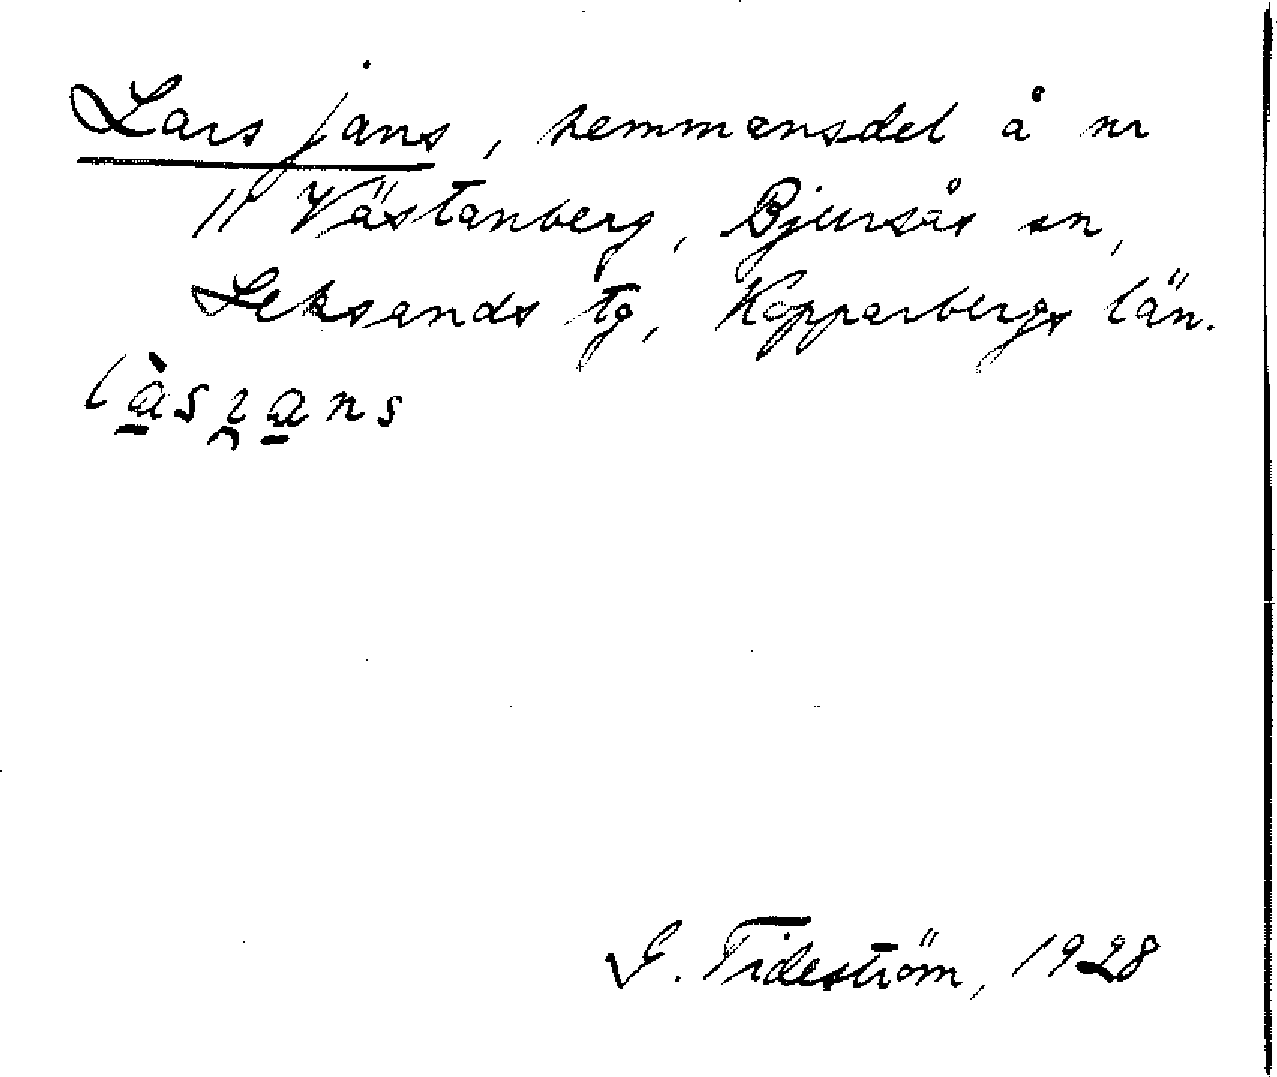 Lars jans, hemmansdel å nr
11 Västanberg, Bjursås sn,
Leksands tg, Kopparbergs län.
G. Tideström, 1928